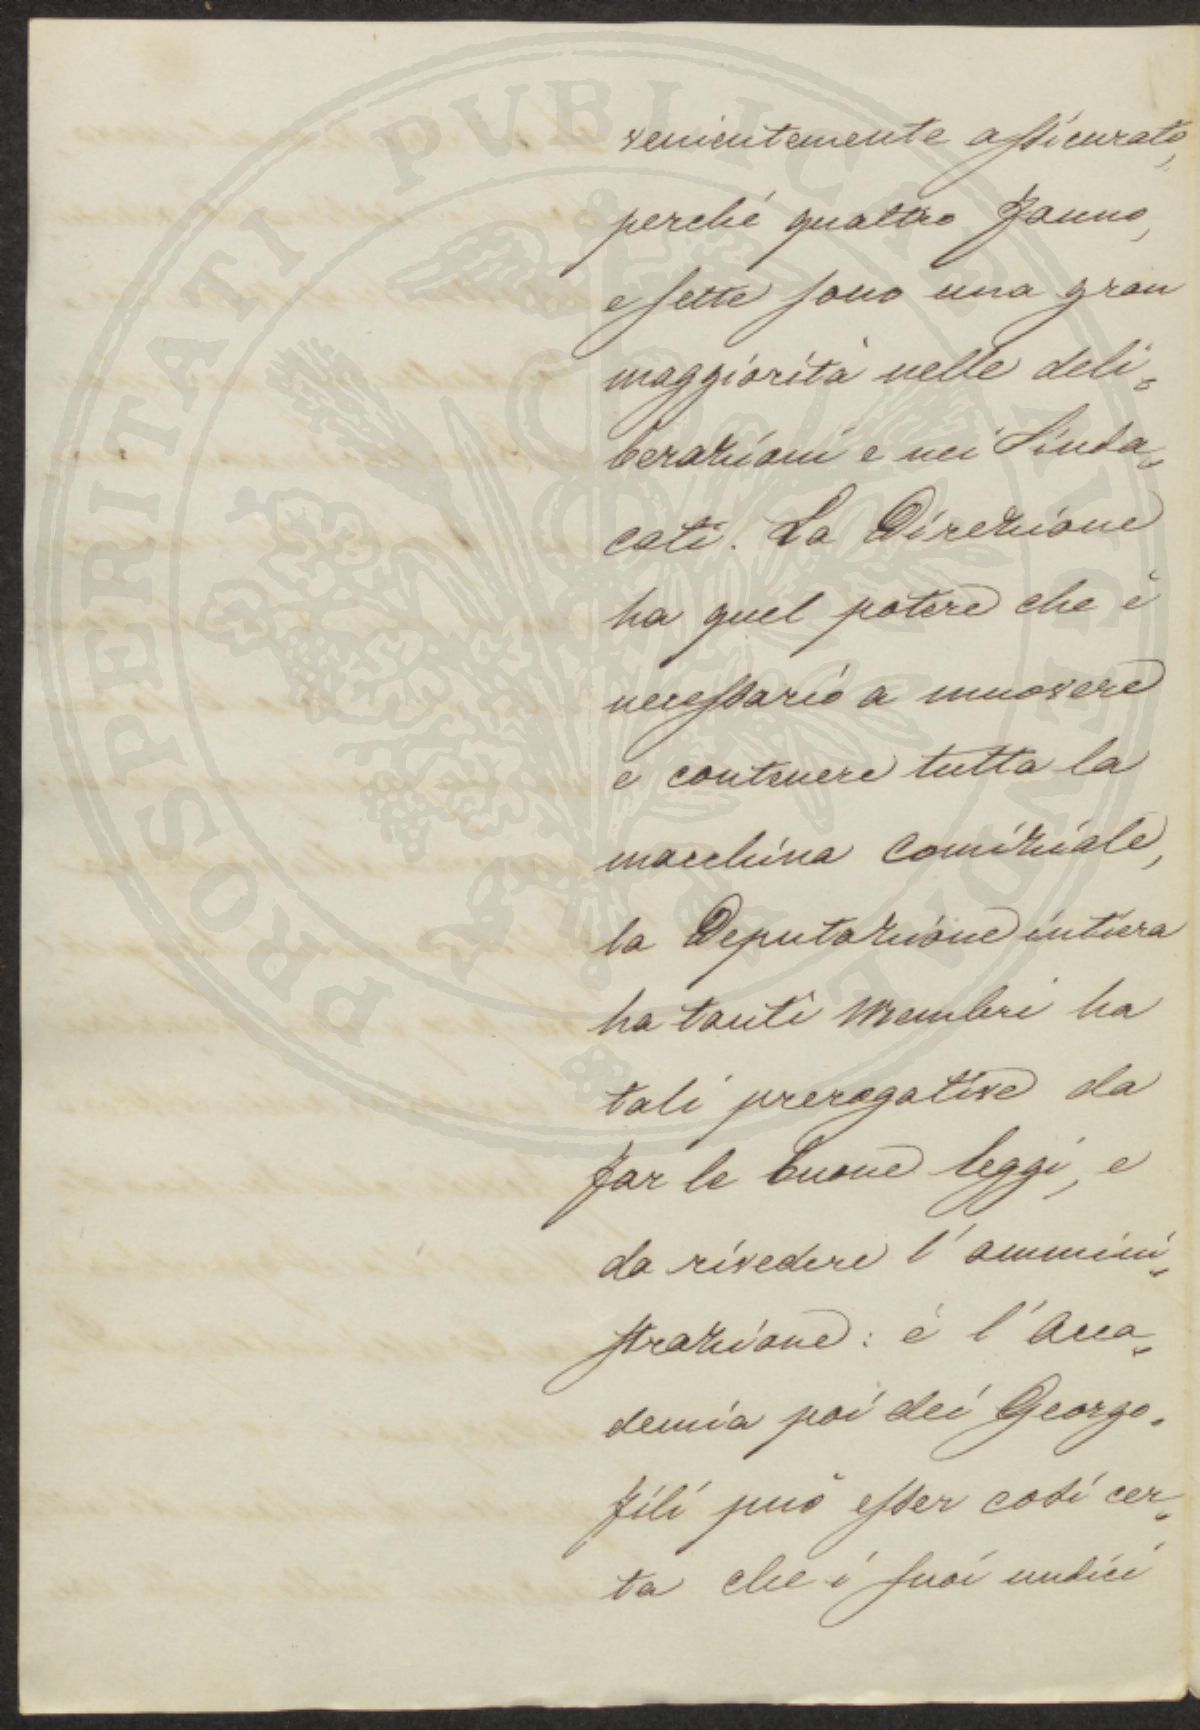 venientemente assicurato,
perché quattro fanno,
e sette sono una gran
maggiorità nelle deli=
berazioni e nei Sinda=
cati. La Direzione
ha quel potere che è
necessario a muovere
e contenere tutta la
macchina Comiziale,
la Deputazione intiera
ha tanti Membri ha
tali prerogative da
far le buone leggi, e
da rivedere l'ammini=
strazione: è l'Acca=
demia poi dei Georgo=
fili può esser così cer=
ta che i suoi undici
PROSPERITATI PVBLICAE AVGENDAE